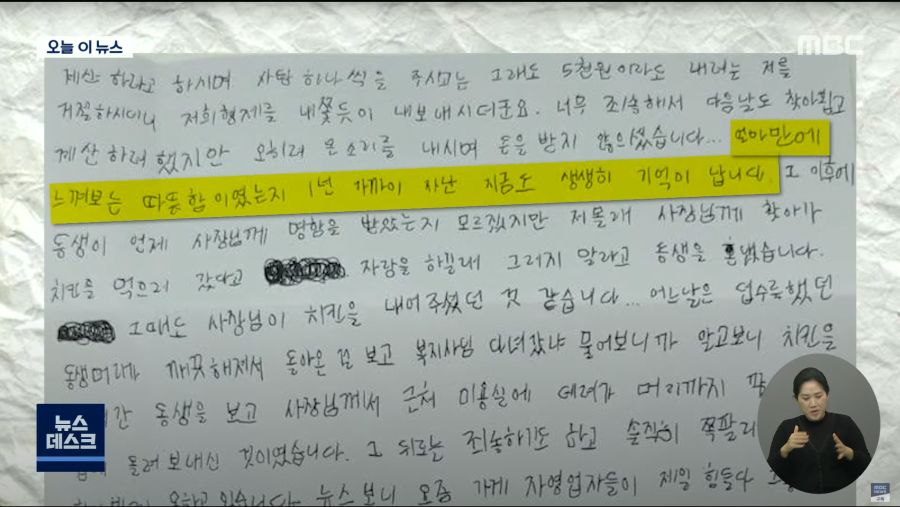 오늘 이 뉴스
MBC
계산 하려고 하시며 사탕 하나씩을 주시고는 그래도 5천원이라도 내려는 저를
거절하시더니 저희형제를 내쫓듯이 내보내시더군요. 너무 죄송해서 다음날도 찾아뵙고
계산하려 했지만 오히려 큰 소리를 내시며 돈을 받지 않으셨습니다... 얼마만에
느껴보는 따뜻함이였는지 1년 가까이 지난 지금도 생생히 기억이 납니다. 그 이후에
동생이 언제 사장님께 명함을 받았는지 모르겠지만 저몰래 사장님께 찾아가
치킨을 먹으러 갔다고 자랑을 하길래 그러지 말라고 동생을 혼냈습니다.
그때도 사장님이 치킨을 내어주셨던 것 같습니다... 어느날은 덥수룩했던
동생머리가 깨끗해져서 돌아온 걸 보고 복지사님 다녀갔냐 물어보니까 알고보니 치킨을
동생을 보고 사장님께서 근처 미용실에 데려가 머리까지
돌려보내신 것이였습니다. 그 뒤로는 죄송하기도 하고 솔직히 쪽팔
뉴스보니 요즘 가게 자영업자들이 제일 힘들다
뉴스
데스크
MBC
NEWS